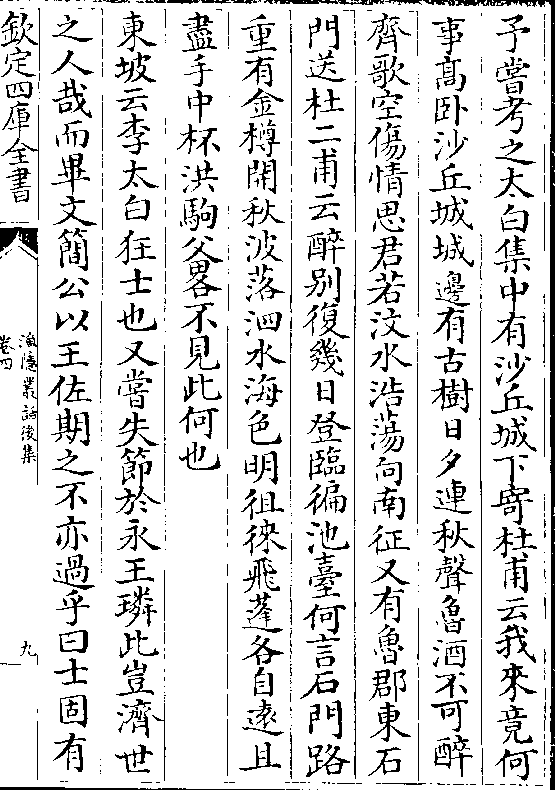 予嘗考之太白集中有沙丘城下寄杜甫云我來竟何
事髙卧沙丘城城邊有古樹日夕連秋聲魯酒不可醉
齊歌空傷情思君若汶水浩蕩向南征又有魯郡東石
門送杜二甫云醉別復幾日登臨徧池臺何言石門路
重有金樽開秋波落泗水海色明徂徠飛蓬各自逺且
盡手中杯洪駒父畧不見此何也
東坡云李太白狂士也又嘗失節於永王璘此豈濟世
之人哉而畢文簡公以王佐期之不亦過乎曰士固有
欽定四庫全書
漁隱叢話後集
卷四
九